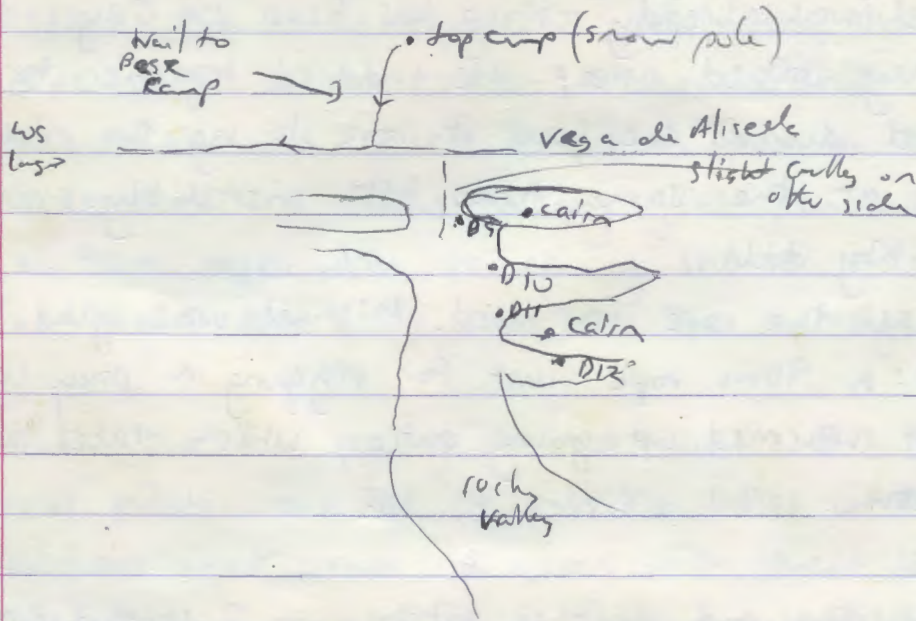 trail to
Base
Camp
• top camp (snow pole)
Vega de Aliseda
slight gulley on
other side
• cairn
• D9
• D10
• D11
• cairn
• D12
rocky
valley